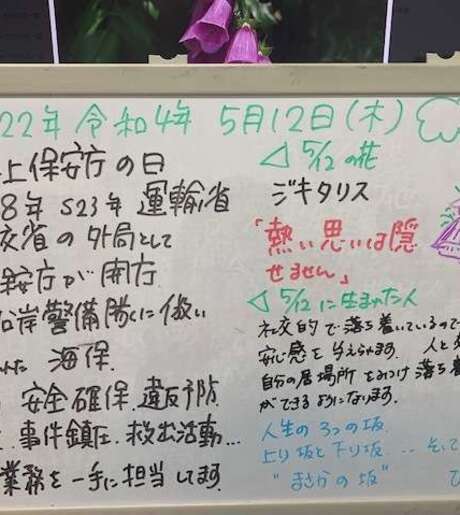 22年 令和4年 5月12日(木)
上保安庁の日
8年 S23年 運輸省
交省の外局として
保安庁が開庁
沿岸警備隊に倣い
海保
安全確保、違反予防
事件鎮圧、救出活動…
業務を一手に担当してます
◁ 5/12の花
ジキタリス
「熱い思いは隠
せません」
◁ 5/12に生まれた人
社交的で落ち着いているので
安心感を与えられます。 人と
自分の居場所をみつけ落ち着
ができるようになります。
人生の3つの坂
上り坂と下り坂…そして
"まさかの坂"